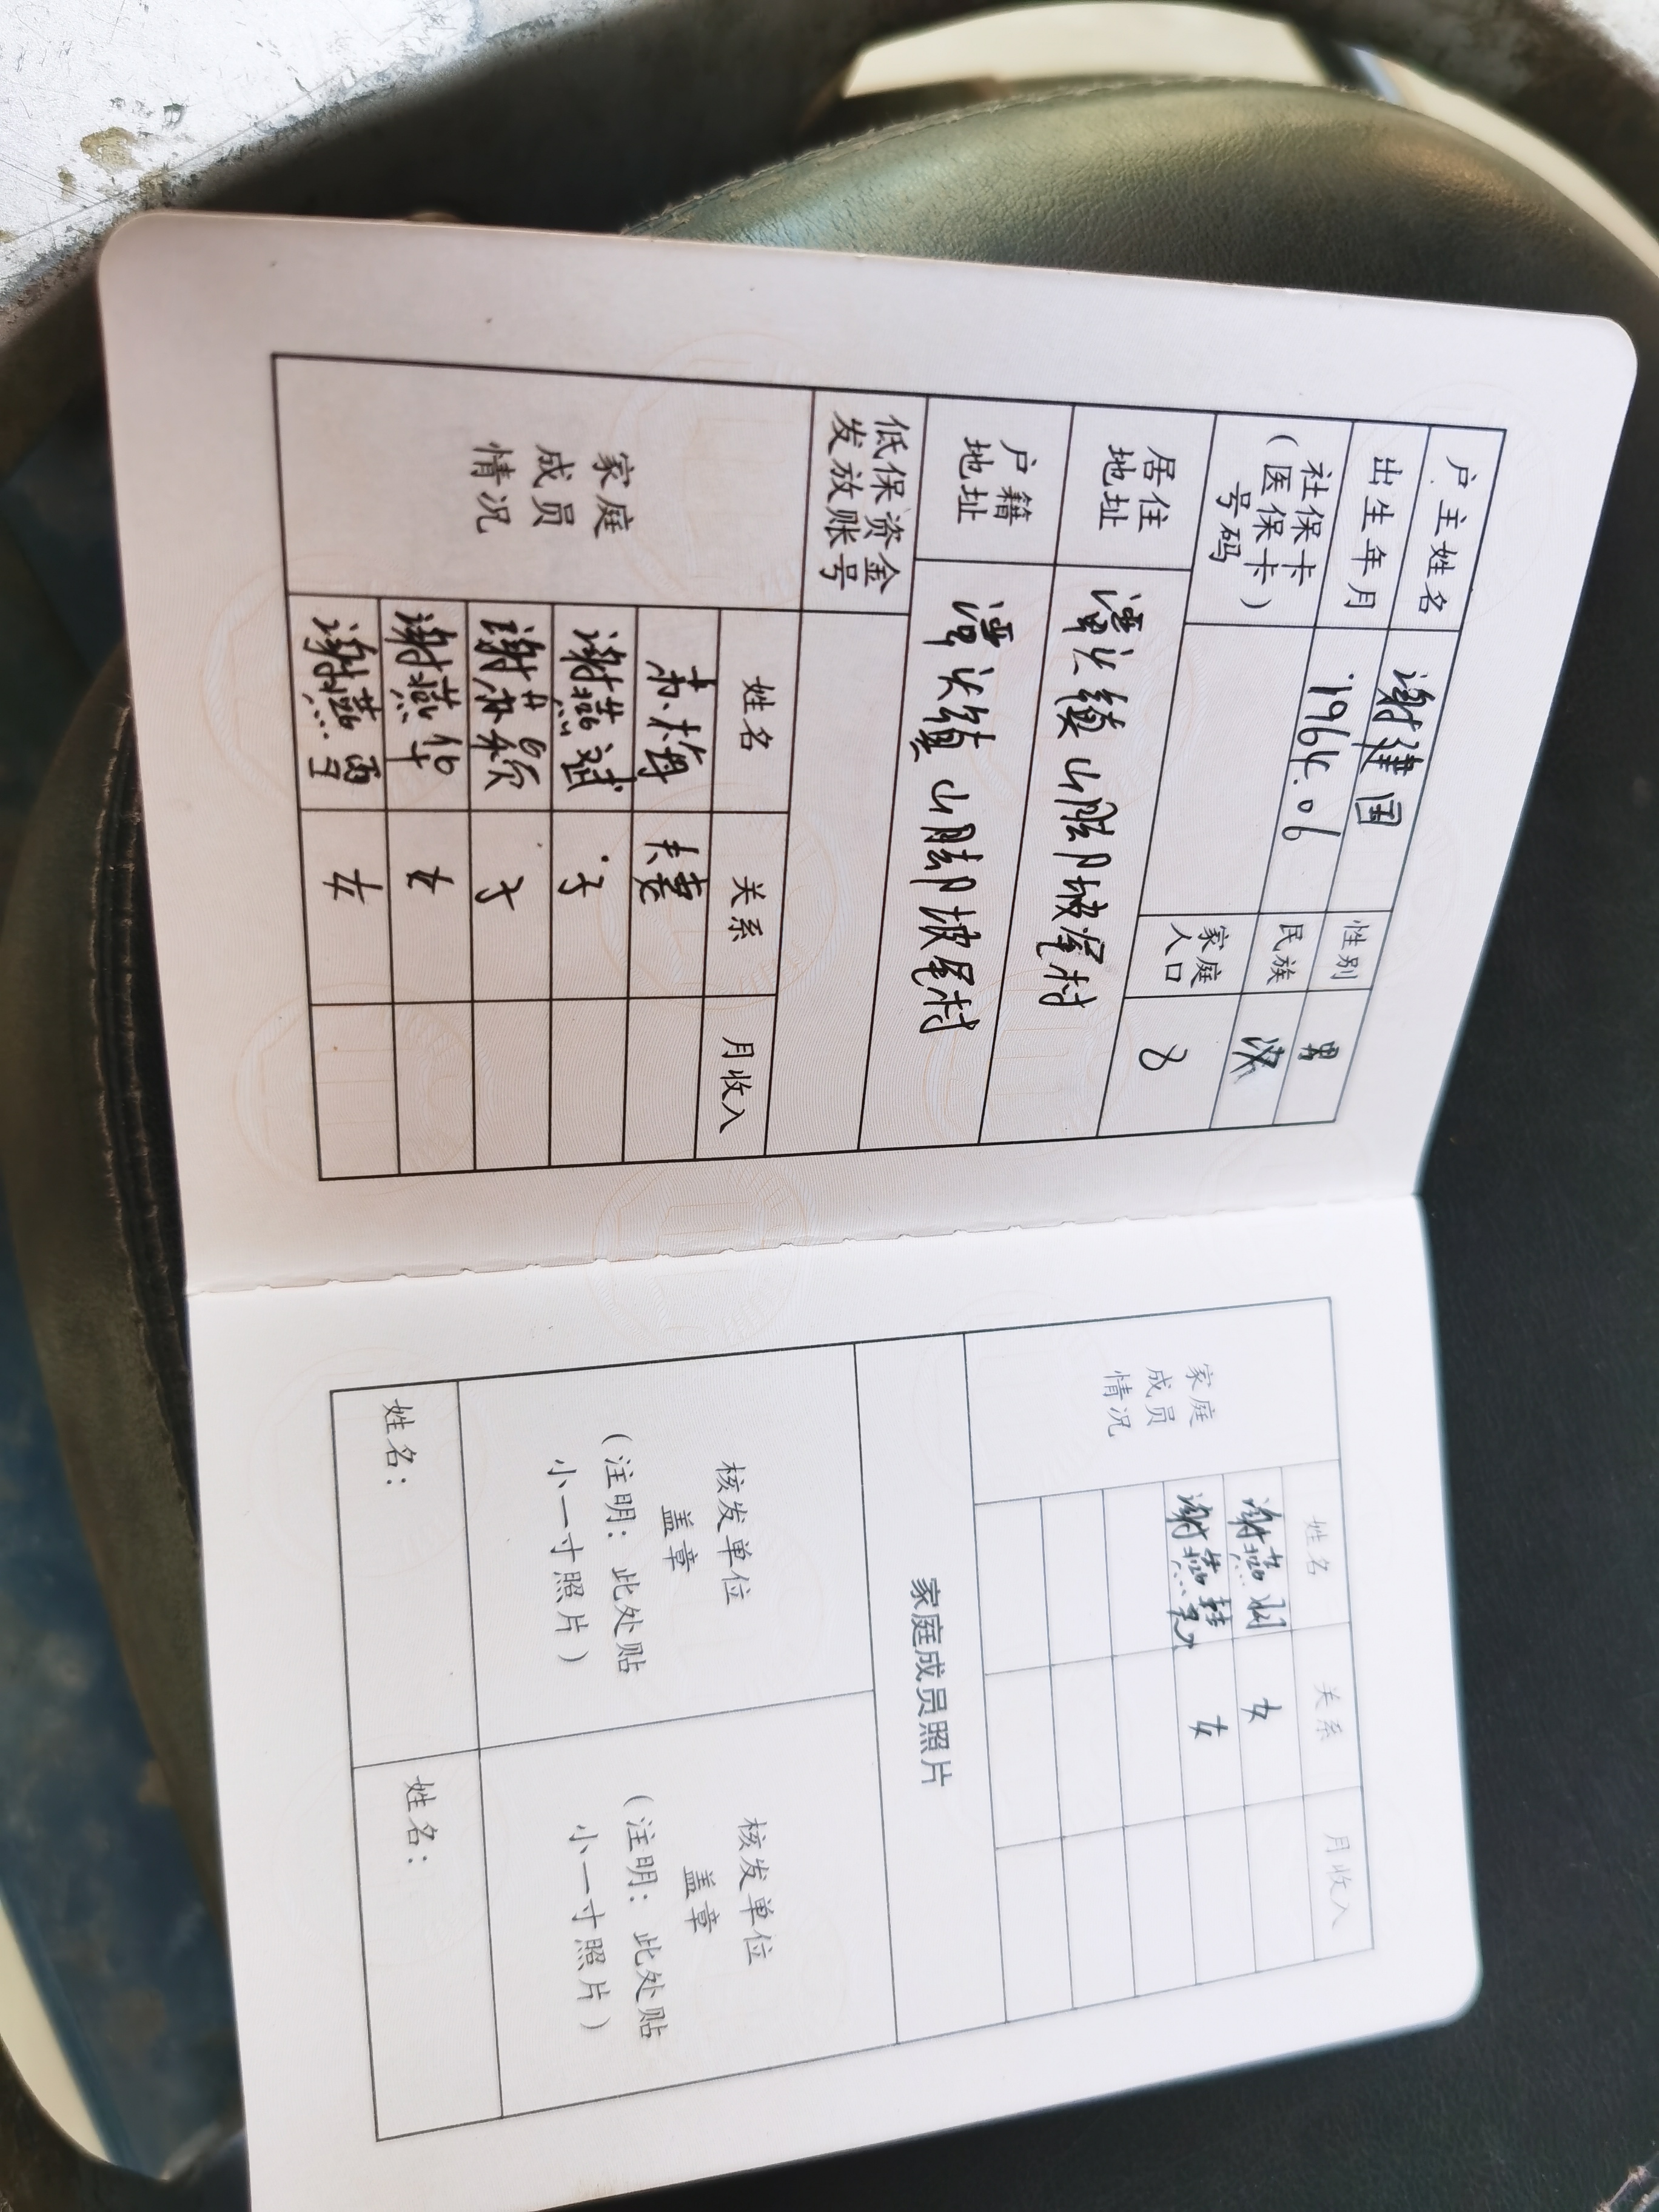 户主姓名 谢建国 性别 男
出生年月 1964.06 民族 汉
社保卡（医保卡）号码 家庭人口 8
居住地址 潭头镇山脚坡尾村
户籍地址 潭头镇山脚坡尾村
低保资金发放账号
家庭成员情况 姓名 关系 月收入
梅 夫妻
谢燕斌 子
谢 子
谢燕华 女
谢燕 女
家庭成员情况 姓名 关系 月收入
谢燕 女
谢燕 女
家庭成员照片
核发单位 核发单位
盖章 盖章
（注明：此处贴 （注明：此处贴
小一寸照片） 小一寸照片）
姓名： 姓名：